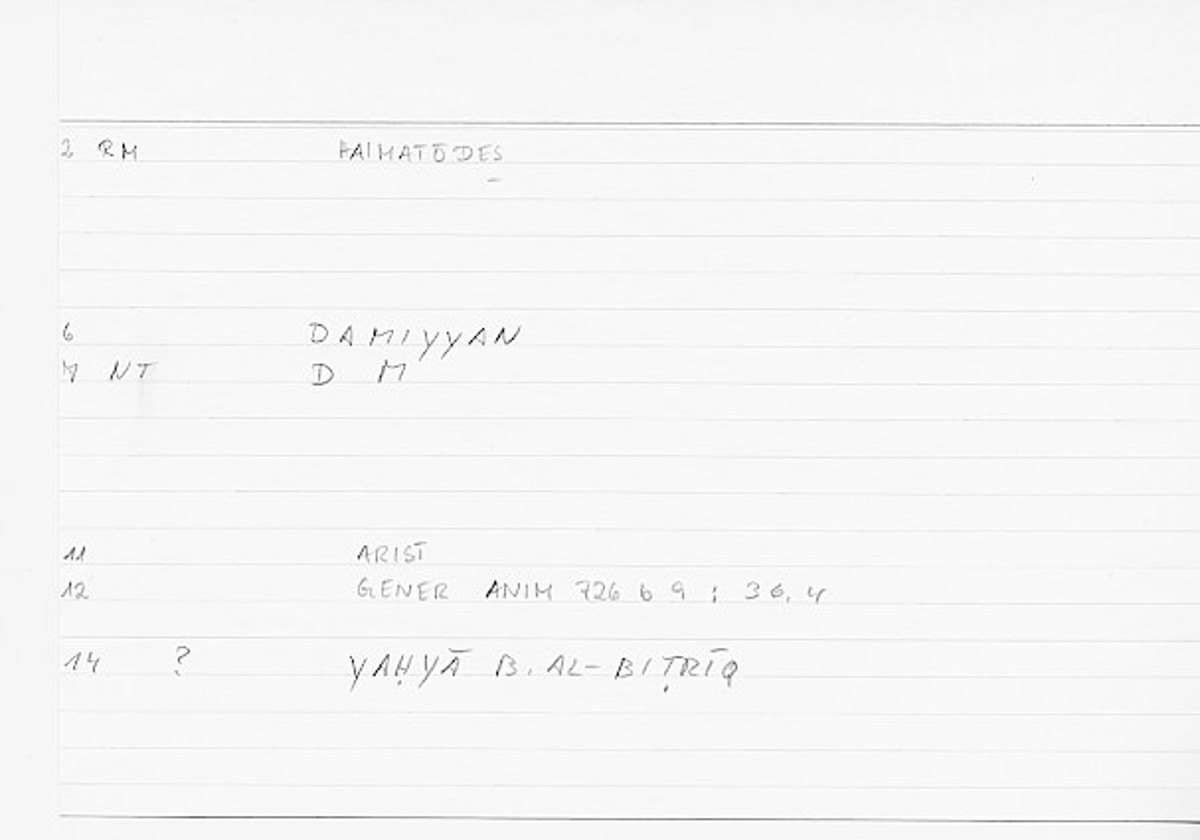 2 RM HAIMATŌDES
6 DAMIYYAN
7 NT D M
11 ARIST
12 GENER ANIM 726 b 9 ; 36,4
14 ? YAḤYĀ B. AL-BIṬRĪQ